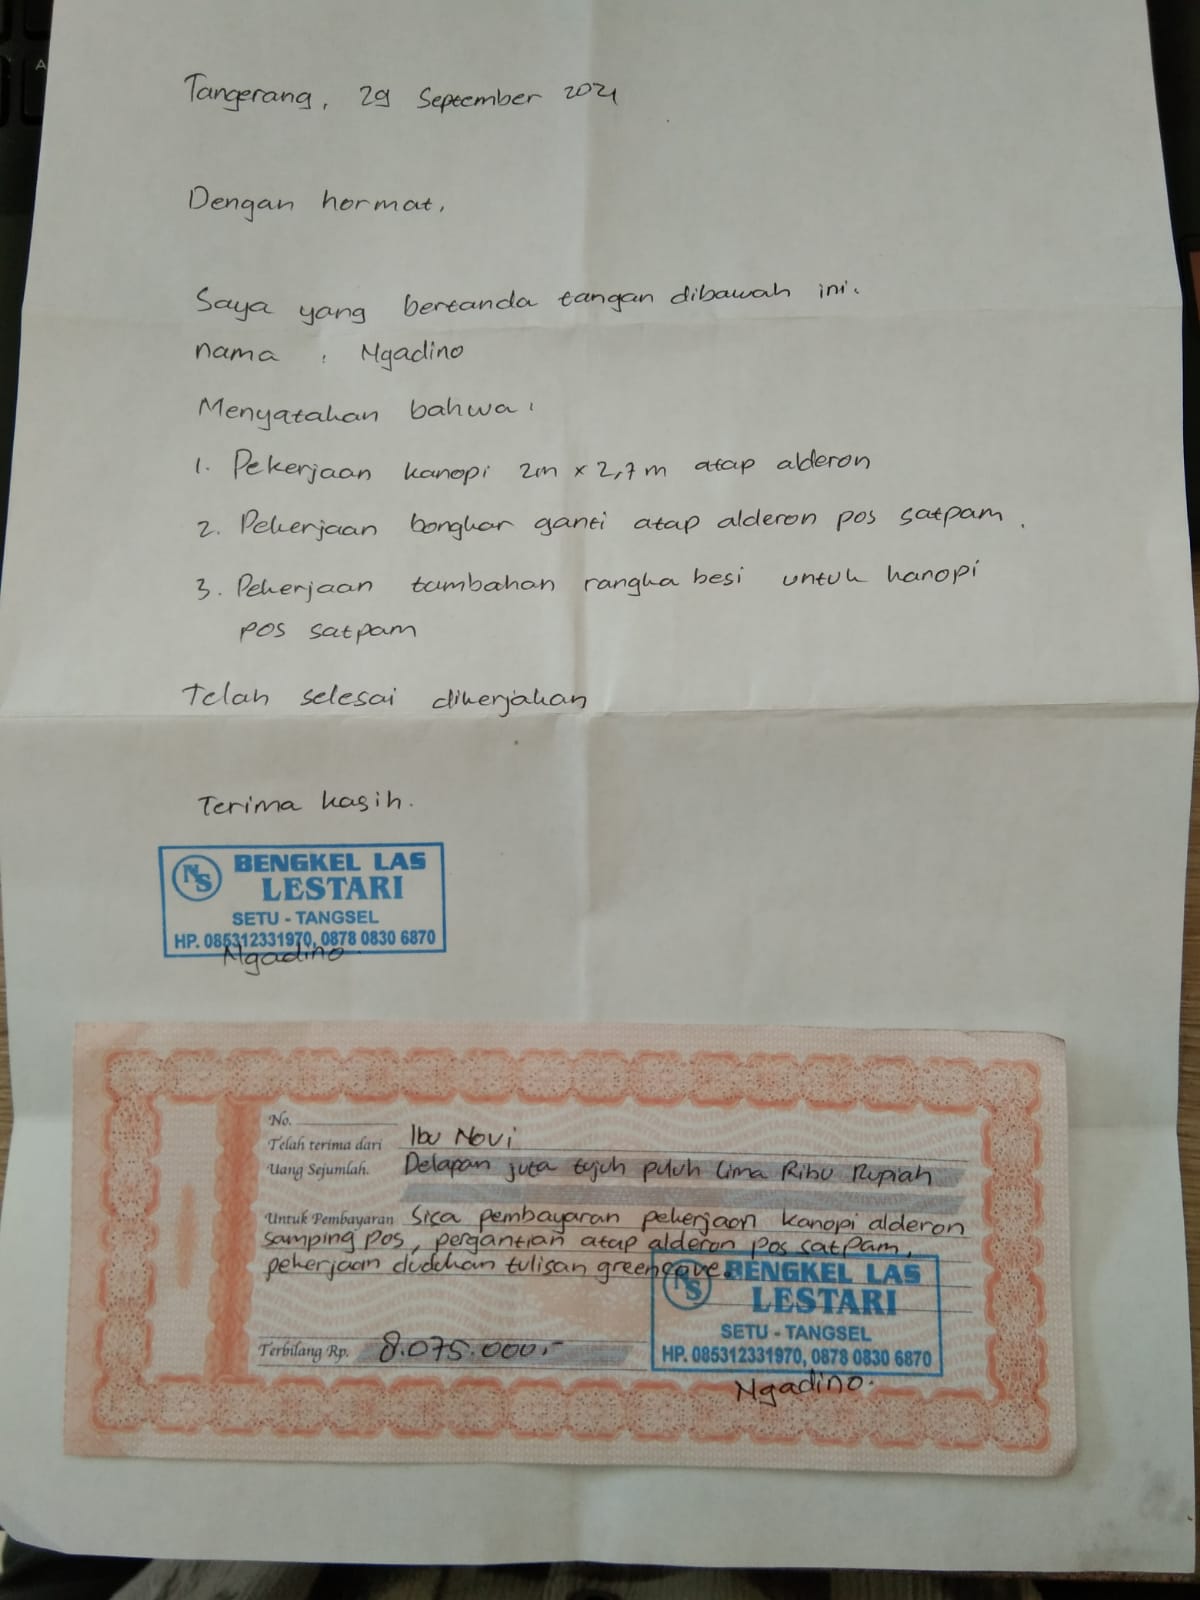 Tangerang, 29 September 2021
Dengan hormat,
Saya yang bertanda tangan dibawah ini.
nama : Ngadino
Menyatakan bahwa :
1. Pekerjaan kanopi 2m x 2,7 m atap alderon
2. Pekerjaan bongkar ganti atap alderon pos satpam.
3. Pekerjaan tambahan rangka besi untuk kanopi
pos satpam
Telah selesai dikerjakan
Terima kasih.
NS
BENGKEL LAS
LESTARI
SETU - TANGSEL
HP. 085312331970, 0878 0830 6870
Ngadino.
No.
Telah terima dari Ibu Novi
Uang Sejumlah. Delapan juta tujuh puluh lima Ribu Rupiah
Untuk Pembayaran Sisa pembayaran pekerjaan kanopi alderon
samping pos, pergantian atap alderon pos satpam,
pekerjaan dudukan tulisan
NS
BENGKEL LAS
LESTARI
SETU - TANGSEL
HP. 085312331970, 0878 0830 6870
Terbilang Rp. 8.075.000,-
Ngadino.